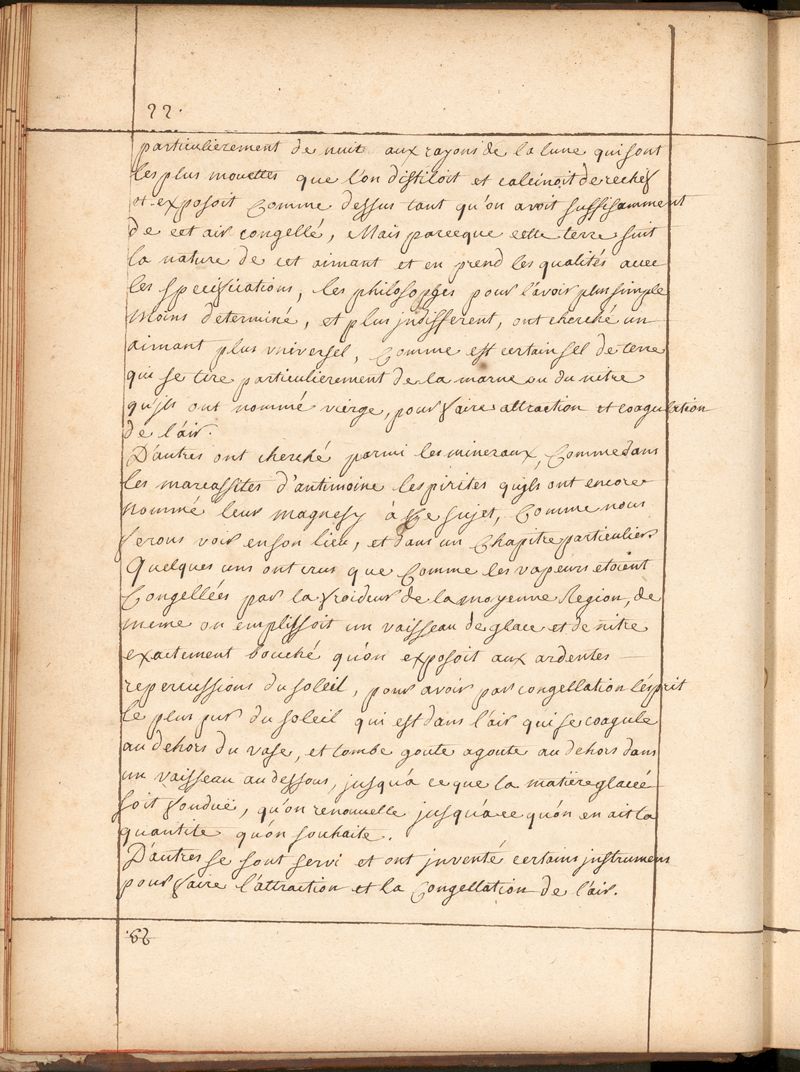 22.
particulierement de nuit aux rayons de la lune qui sont
les plus mouettes que l'on distiloit et calcinoit derechef
et exposoit Comme dessus tant qu'on avoit suffisamment
de cet air congellé, Mais parceque cette terre suit
la nature de cet aimant et en prend les qualités avec
les specifications, les philosophes pour l'avoir plus simple
Moins determiné, et plus jndifferent, ont cherché un
aimant plus vniversel, Comme est certain sel de terre
qui se tire particulierement de la marne ou du nitre
qu'jls ont nommé vierge, pour faire attraction et coagulation
de l'air.
D'autres ont cherché parmi les mineraux, Comme dans
les marcassites d'antimoine les pirites qu'jls ont encore
nommé leur magnesy à Ce sujet, Comme nous
ferons voir en son lieu, et dans un Chapitre particulier.
Quelques uns ont crus que Comme les vapeurs etoient
Congellées par la froideur de la moyenne Region, de
meme on emplissoit un vaisseau de glace et de nitre
exactement bouché qu'on exposoit aux ardentes
repercussions du soleil, pour avoir par congellation l'ésprit
le plus pur du soleil qui est dans l'air qui se coagule
au dehors du vase, et tombe goute agoute au dehors dans
un vaisseau au dessous, jusqu'a ce que la matiere glacée
soit fonduë, qu'on renouvelle jusqu'a ce qu'on en ait la
quantite qu'on souhaite.
D'autres se sont servi et ont jnventé certains jnstrumens
pour faire l'attraction et la Congellation de l'air.